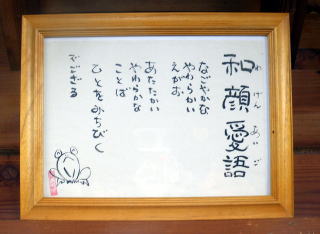 和顔愛語
わげんあいご
なごやかな
やわらかい
えがお
あたたかい
やわらかな
ことば
ひとをみちびく
でござる